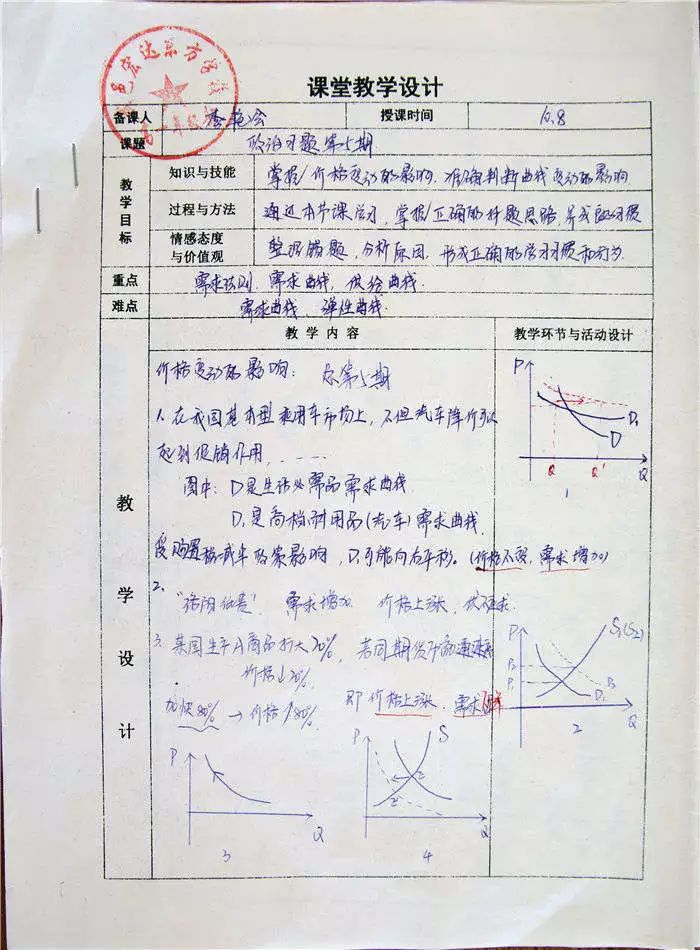 宏达东方学校
课堂教学设计
备课人
授课时间 10.8
课题 政治习题第5期
教学目标
知识与技能 掌握价格变动的影响.准确判断曲线变动的影响
过程与方法 通过本节课学习,掌握正确的解题思路,养成良好习惯
情感态度与价值观 整理错题,分析原因,形成正确的学习习惯和行为.
重点 需求法则.需求曲线,供给曲线.
难点 需求曲线,弹性曲线.
教学内容
教学环节与活动设计
教学设计
价格变动的影响: 总第5期
1.在我国基本型乘用车市场上,不但汽车降价可以
起到促销作用,......
图中: D是生活必需品需求曲线
D₁是高档耐用品(汽车)需求曲线.
受购置税减半政策影响,D₁可能向右平移。(价格不变,需求增加)
2.
"洛阳纸贵" 需求增加 价格上涨,供不应求.
3.某国生产A商品扩大20%,若同期货币流通速度
价格↓20%.
加快80% → 价格↑80%.
即价格上涨.需求
P
D₁
D
Q Q' Q
1
P S₁(S₂)
P₂
P₁
D₂
D₁
Q
2
P
Q
3
P S
Q
4